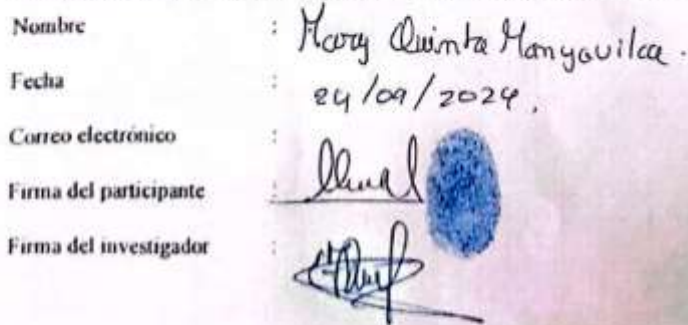 Nombre : Mary Quinta Manyavilca.
Fecha : 24/09/2024.
Correo electrónico :
Firma del participante :
Firma del investigador :